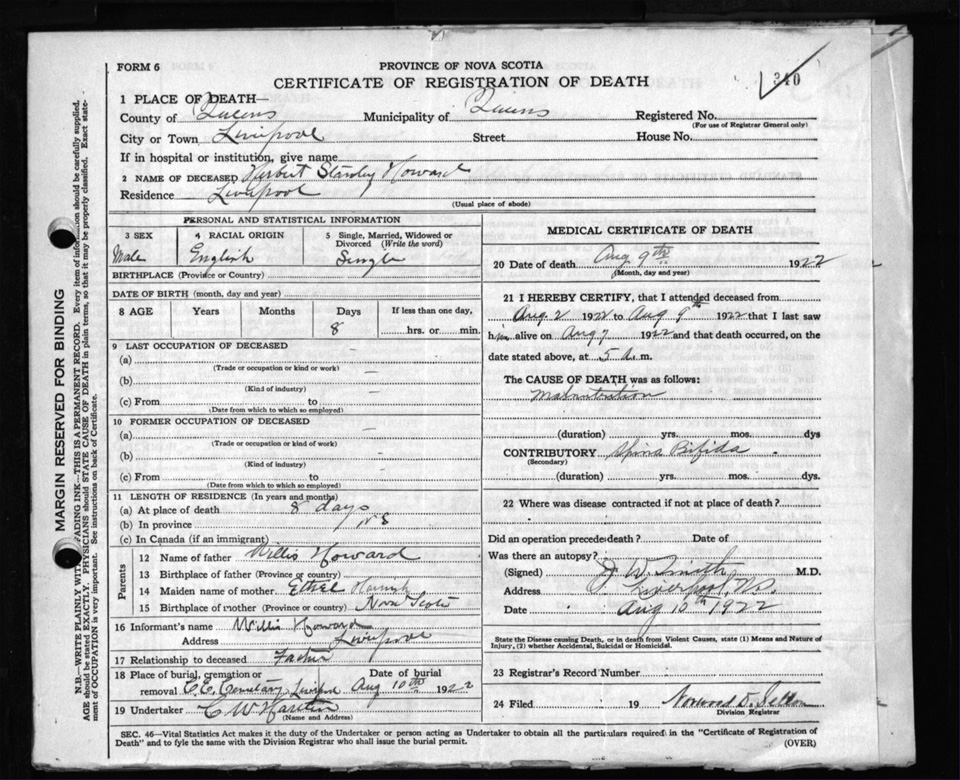 FORM 6
PROVINCE OF NOVA SCOTIA
CERTIFICATE OF REGISTRATION OF DEATH
340
1 PLACE OF DEATH—
County of Queens Municipality of Queens Registered No.
(For use of Registrar General only)
City or Town Liverpool Street House No.
If in hospital or institution, give name
2 NAME OF DECEASED Herbert Stanley Howard
Residence Liverpool
(Usual place of abode)
PERSONAL AND STATISTICAL INFORMATION
3 SEX 4 RACIAL ORIGIN 5 Single, Married, Widowed or
Divorced (Write the word)
Male English Single
BIRTHPLACE (Province or Country)
DATE OF BIRTH (month, day and year)
8 AGE Years Months Days If less than one day,
8 hrs. or min.
9 LAST OCCUPATION OF DECEASED
(a)
(Trade or occupation or kind or work)
(b)
(Kind of industry)
(c) From to
(Date from which to which so employed)
10 FORMER OCCUPATION OF DECEASED
(a)
(Trade or occupation or kind of work)
(b)
(Kind of industry)
(c) From to
(Date from which to which so employed)
11 LENGTH OF RESIDENCE (In years and months)
(a) At place of death 8 days
(b) In province N S
(c) In Canada (if an immigrant)
Parents
12 Name of father Willis Howard
13 Birthplace of father (Province or country)
14 Maiden name of mother Ethel
15 Birthplace of mother (Province or country) Nova Scotia
16 Informant's name Willis Howard
Address Liverpool
17 Relationship to deceased Father
18 Place of burial, cremation or Date of burial
removal C.E. Cemetary Liverpool Aug 10th 1922
19 Undertaker C W
(Name and Address)
MEDICAL CERTIFICATE OF DEATH
20 Date of death Aug 9th 1922
(Month, day and year)
21 I HEREBY CERTIFY, that I attended deceased from
Aug. 2 1922 to Aug 9th 1922 that I last saw
him alive on Aug 7 1922 and that death occurred, on the
date stated above, at 5 a. m.
The CAUSE OF DEATH was as follows:
Malnutrition
(duration) yrs. mos. dys
CONTRIBUTORY Spina Bifida
(Secondary)
(duration) yrs. mos. dys.
22 Where was disease contracted if not at place of death?
Did an operation precede death? Date of
Was there an autopsy?
(Signed) J W Smith M.D.
Address Liverpool, N.S.
Date Aug 10th 1922
State the Disease causing Death, or in death from Violent Causes, state (1) Means and Nature of
Injury, (2) whether Accidental, Suicidal or Homicidal.
23 Registrar's Record Number
24 Filed 19
Division Registrar
SEC. 46—Vital Statistics Act makes it the duty of the Undertaker or person acting as Undertaker to obtain all the particulars required in the "Certificate of Registration of
Death" and to fyle the same with the Division Registrar who shall issue the burial permit.
(OVER)
MARGIN RESERVED FOR BINDING